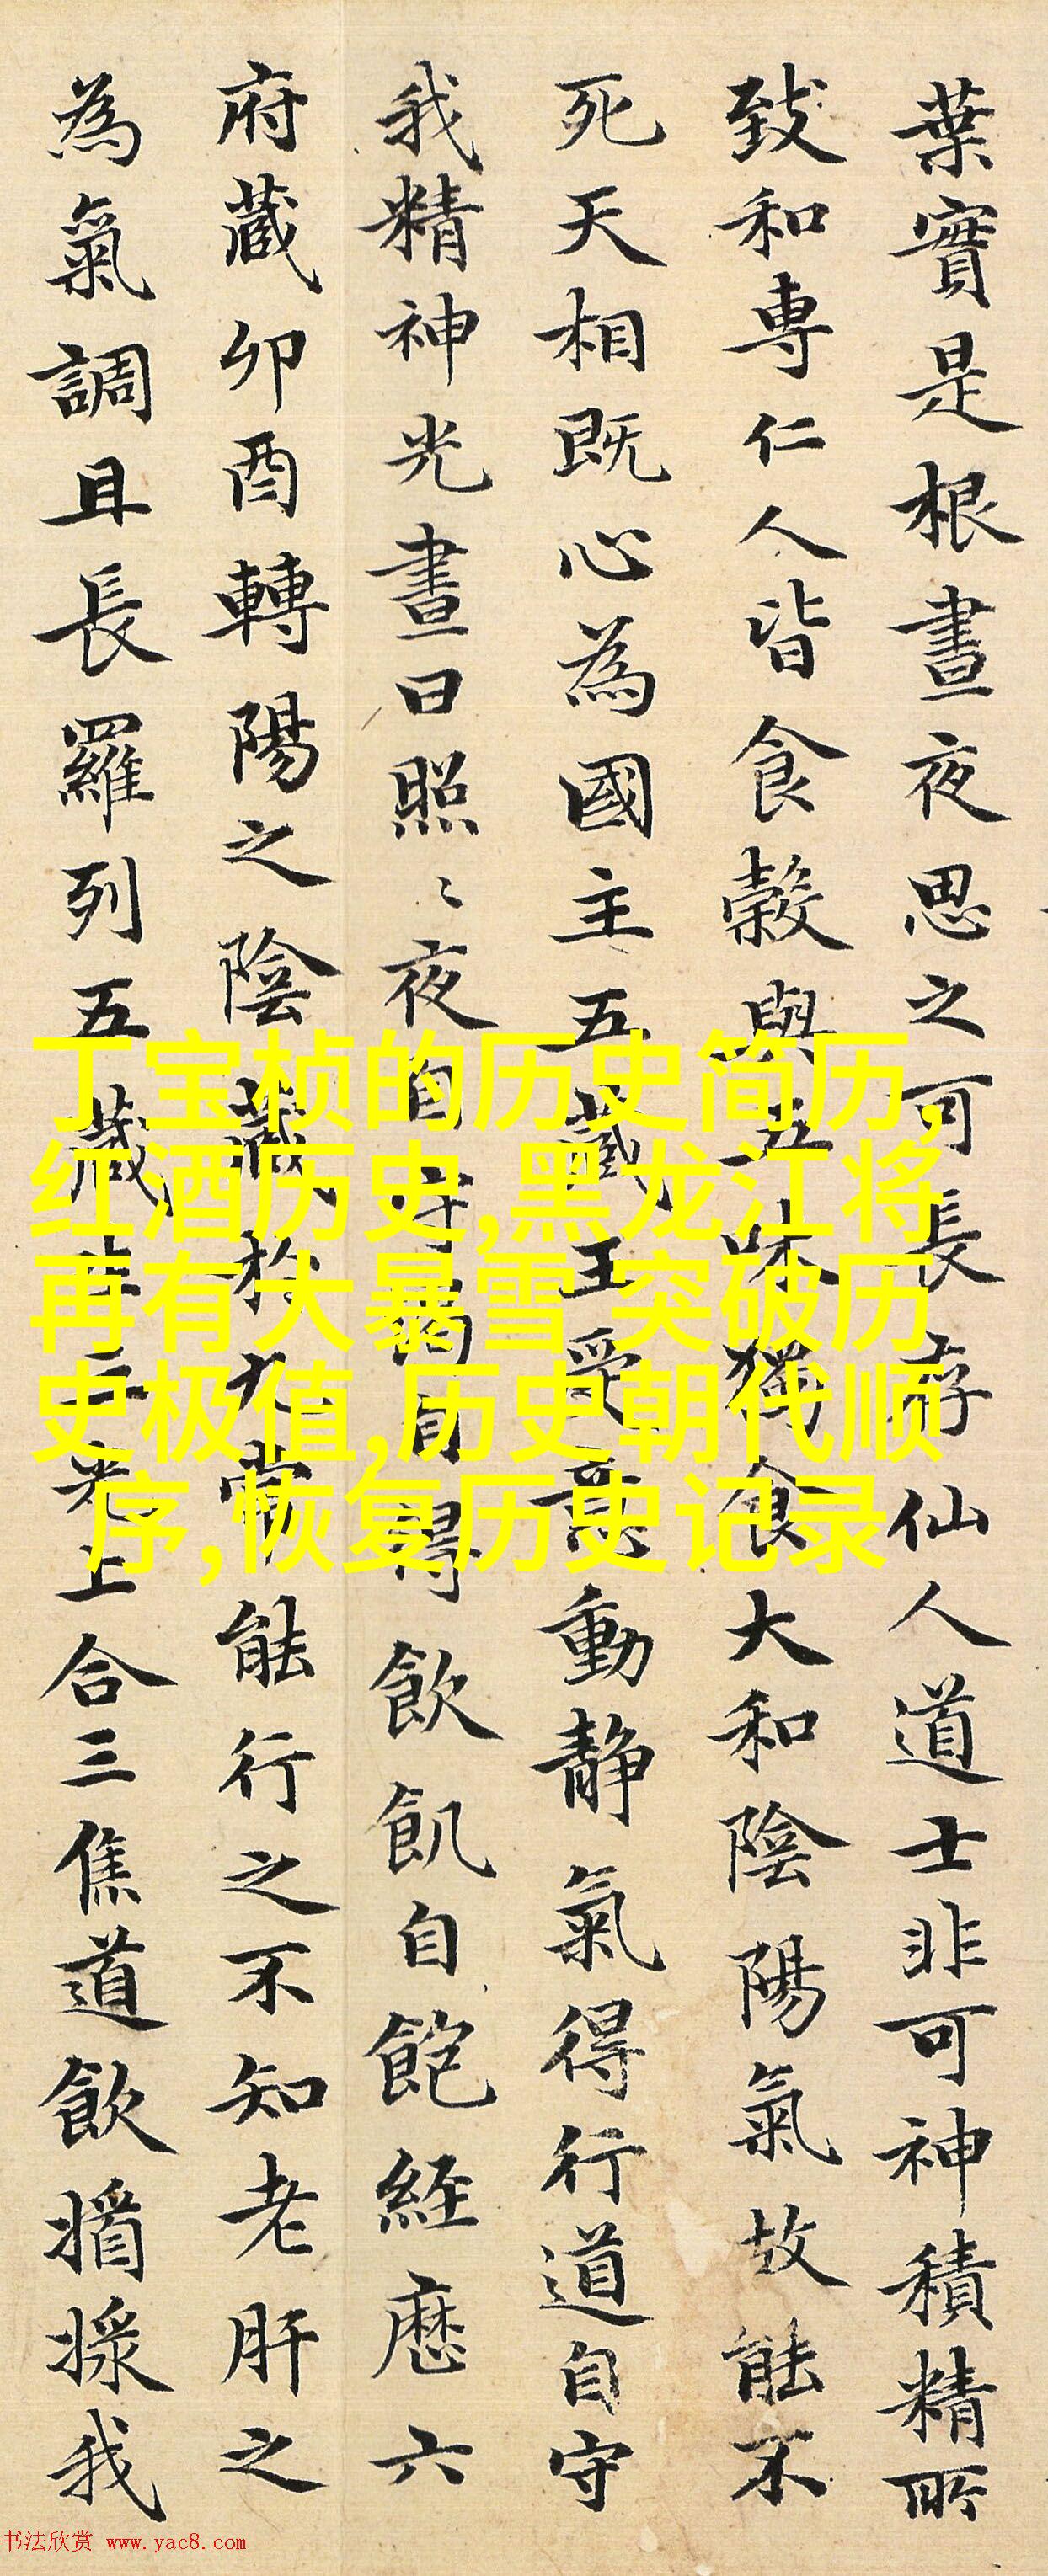 葉實是根晝夜思之可長存仙人道士非可神積精所
致和専仁人皆食穀與五味獨食大和陰陽氣故能不
死天相既心為國主五藏王受意動静氣得行道自守
我精神光晝日照〻夜自守渴自得飲飢自飽経歷六
府藏卯酉轉陽之陰藏於九常能行之不知老肝之
為氣調且長羅列五藏生三光上合三焦道飲
我
丁宝桢的历史简历,
红酒历史,黑龙江将
再有大暴雪 突破历
史极值,历史朝代顺
序,恢复历史记录
书法欣赏 www.yac8.com